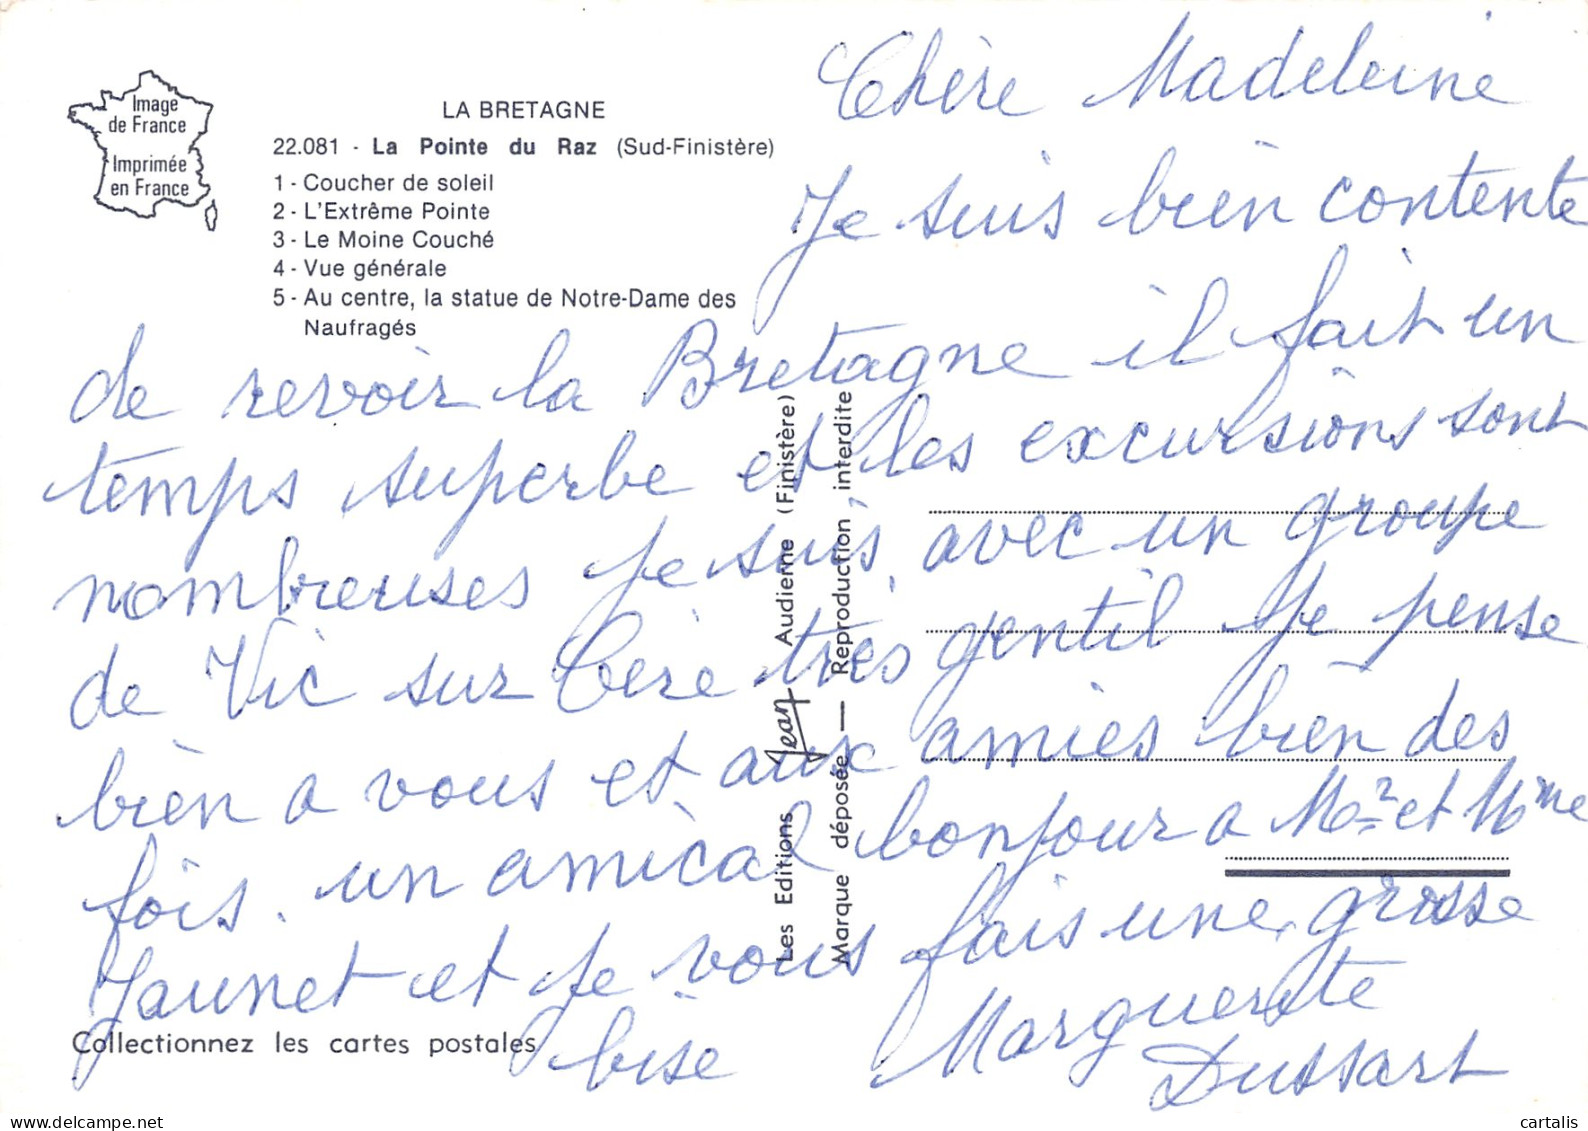 Image
de France
Imprimée
en France
LA BRETAGNE
22.081 - La Pointe du Raz (Sud-Finistère)
1 - Coucher de soleil
2 - L'Extrême Pointe
3 - Le Moine Couché
4 - Vue générale
5 - Au centre, la statue de Notre-Dame des
Naufragés
Chère Madeleine
Je suis bien contente
de revoir la Bretagne il fait un
temps superbe et les excursions sont
nombreuses je suis avec un groupe
de Vic sur Cère très gentil Je pense
bien a vous et aux amies bien des
fois. un amical bonjour a Mr et Mme
Jaunet et je vous fais une grosse
bise Marguerite
Dussart
Les Editions Jean Audierne (Finistère)
Marque déposée — Reproduction interdite
Collectionnez les cartes postales
delcampe.net
cartalis